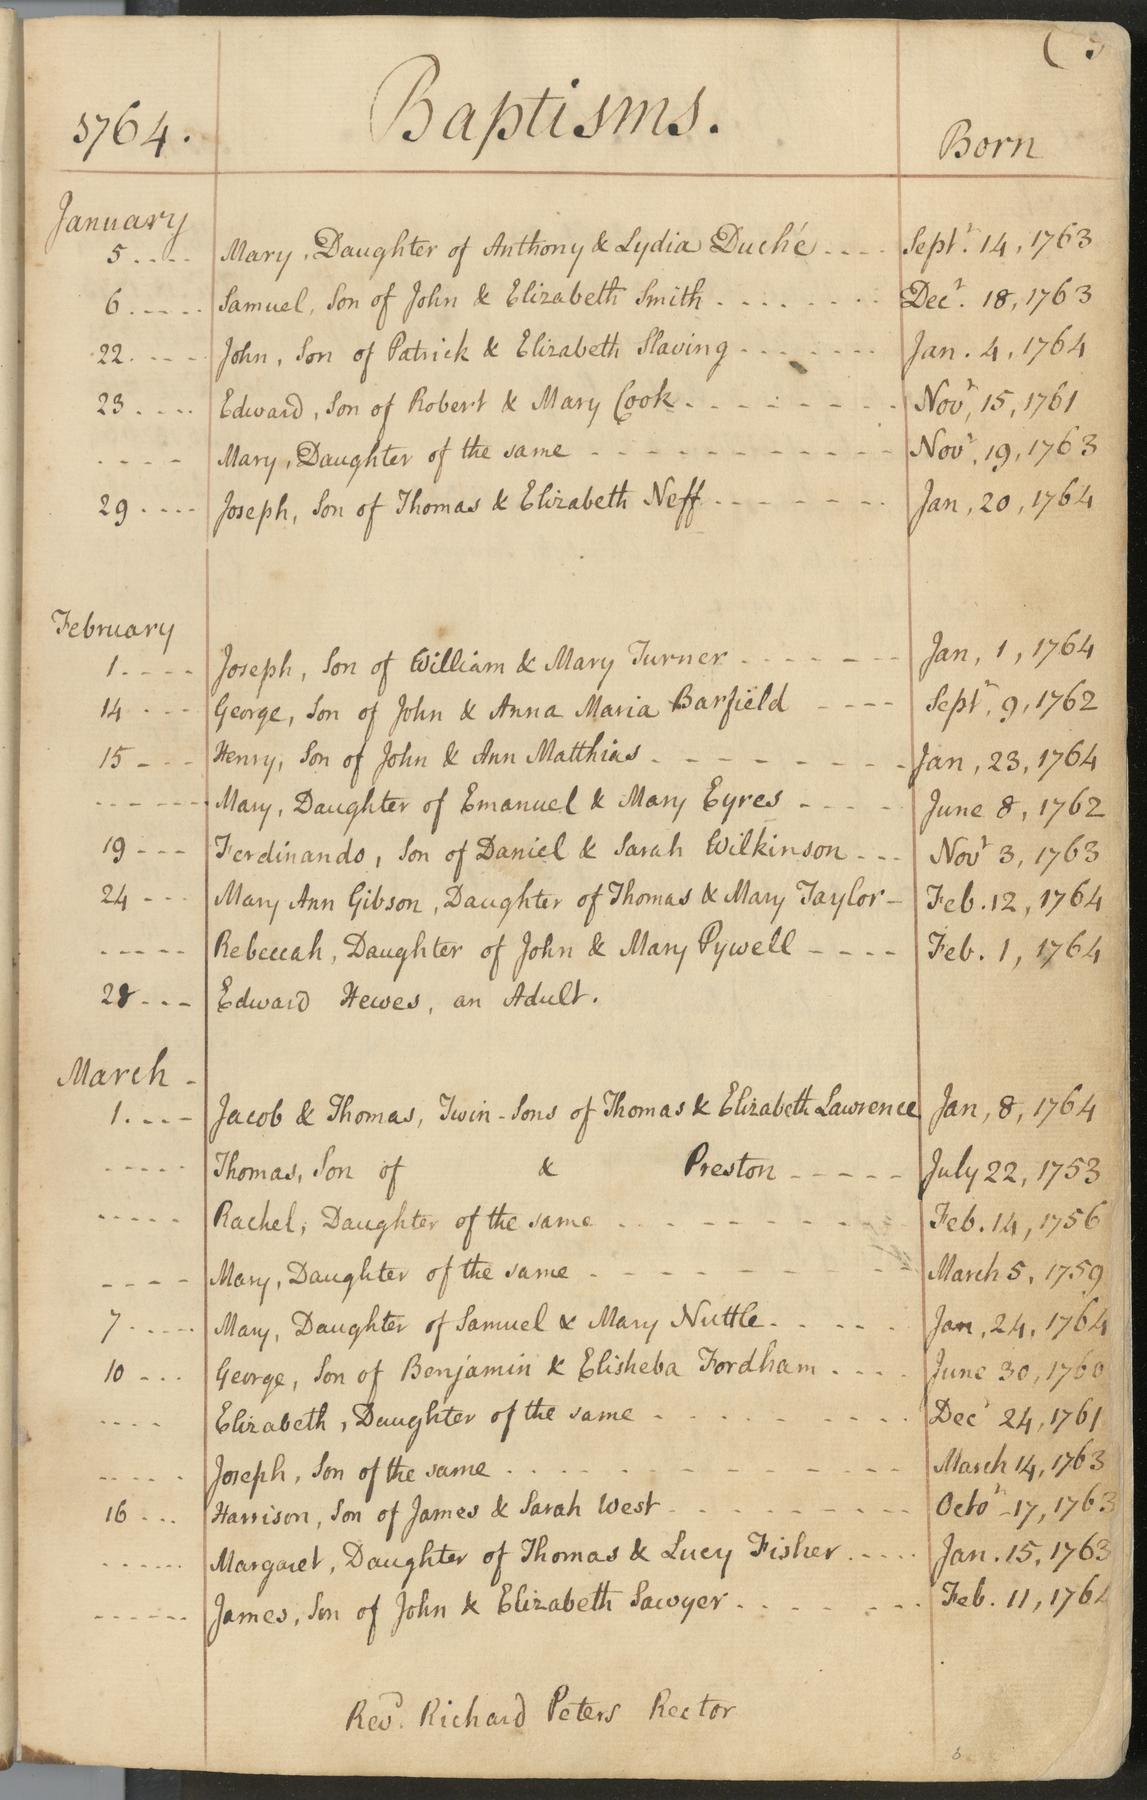 ( 3
1764. Baptisms. Born
January
5 .... Mary, Daughter of Anthony & Lydia Duché .... Septr. 14, 1763
6 ..... Samuel, Son of John & Elizabeth Smith ........ Decr. 18, 1763
22. --- John, Son of Patrick & Elizabeth Slaving ....... Jan. 4, 1764
23 .... Edward, Son of Robert & Mary Cook ........ Novr. 15, 1761
.... Mary, Daughter of the same ............ Novr. 19, 1763
29 .... Joseph, Son of Thomas & Elizabeth Neff ....... Jan, 20, 1764
February
1 .... Joseph, Son of William & Mary Turner ....... Jan, 1, 1764
14 ... George, Son of John & Anna Maria Barfield .... Septr. 9, 1762
15 ... Henry, Son of John & Ann Matthias ......... Jan, 23, 1764
...... Mary, Daughter of Emanuel & Mary Eyres ..... June 8, 1762
19 --- Ferdinando, Son of Daniel & Sarah Wilkinson ... Novr 3, 1763
24 --- Mary Ann Gibson, Daughter of Thomas & Mary Taylor - Feb. 12, 1764
----- Rebeccah, Daughter of John & Mary Pywell ---- Feb. 1, 1764
28 --- Edward Hewes, an Adult.
March -
1 .... Jacob & Thomas, Twin-Sons of Thomas & Elizabeth Lawrence Jan, 8, 1764
..... Thomas, Son of & Preston ----- July 22, 1753
..... Rachel, Daughter of the same ......... Feb. 14, 1756
---- Mary, Daughter of the same --------- March 5, 1759
7 ..... Mary, Daughter of Samuel & Mary Nuttle ..... Jan, 24, 1764
10 ... George, Son of Benjamin & Elisheba Fordham .... June 30, 1760
.... Elizabeth, Daughter of the same ......... Decr 24, 1761
..... Joseph, Son of the same ............ March 14, 1763
16 ... Harrison, Son of James & Sarah West ........ Octor - 17, 1763
...... Margaret, Daughter of Thomas & Lucy Fisher ..... Jan. 15, 1763
...... James, Son of John & Elizabeth Sawyer ....... Feb. 11, 1764
Revd. Richard Peters Rector